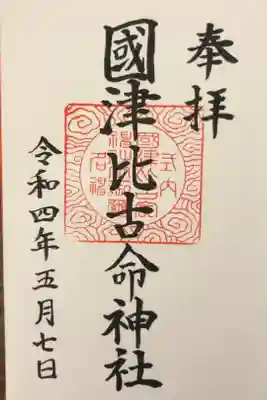 奉拝
國津比古命神社
令和四年五月七日
式内